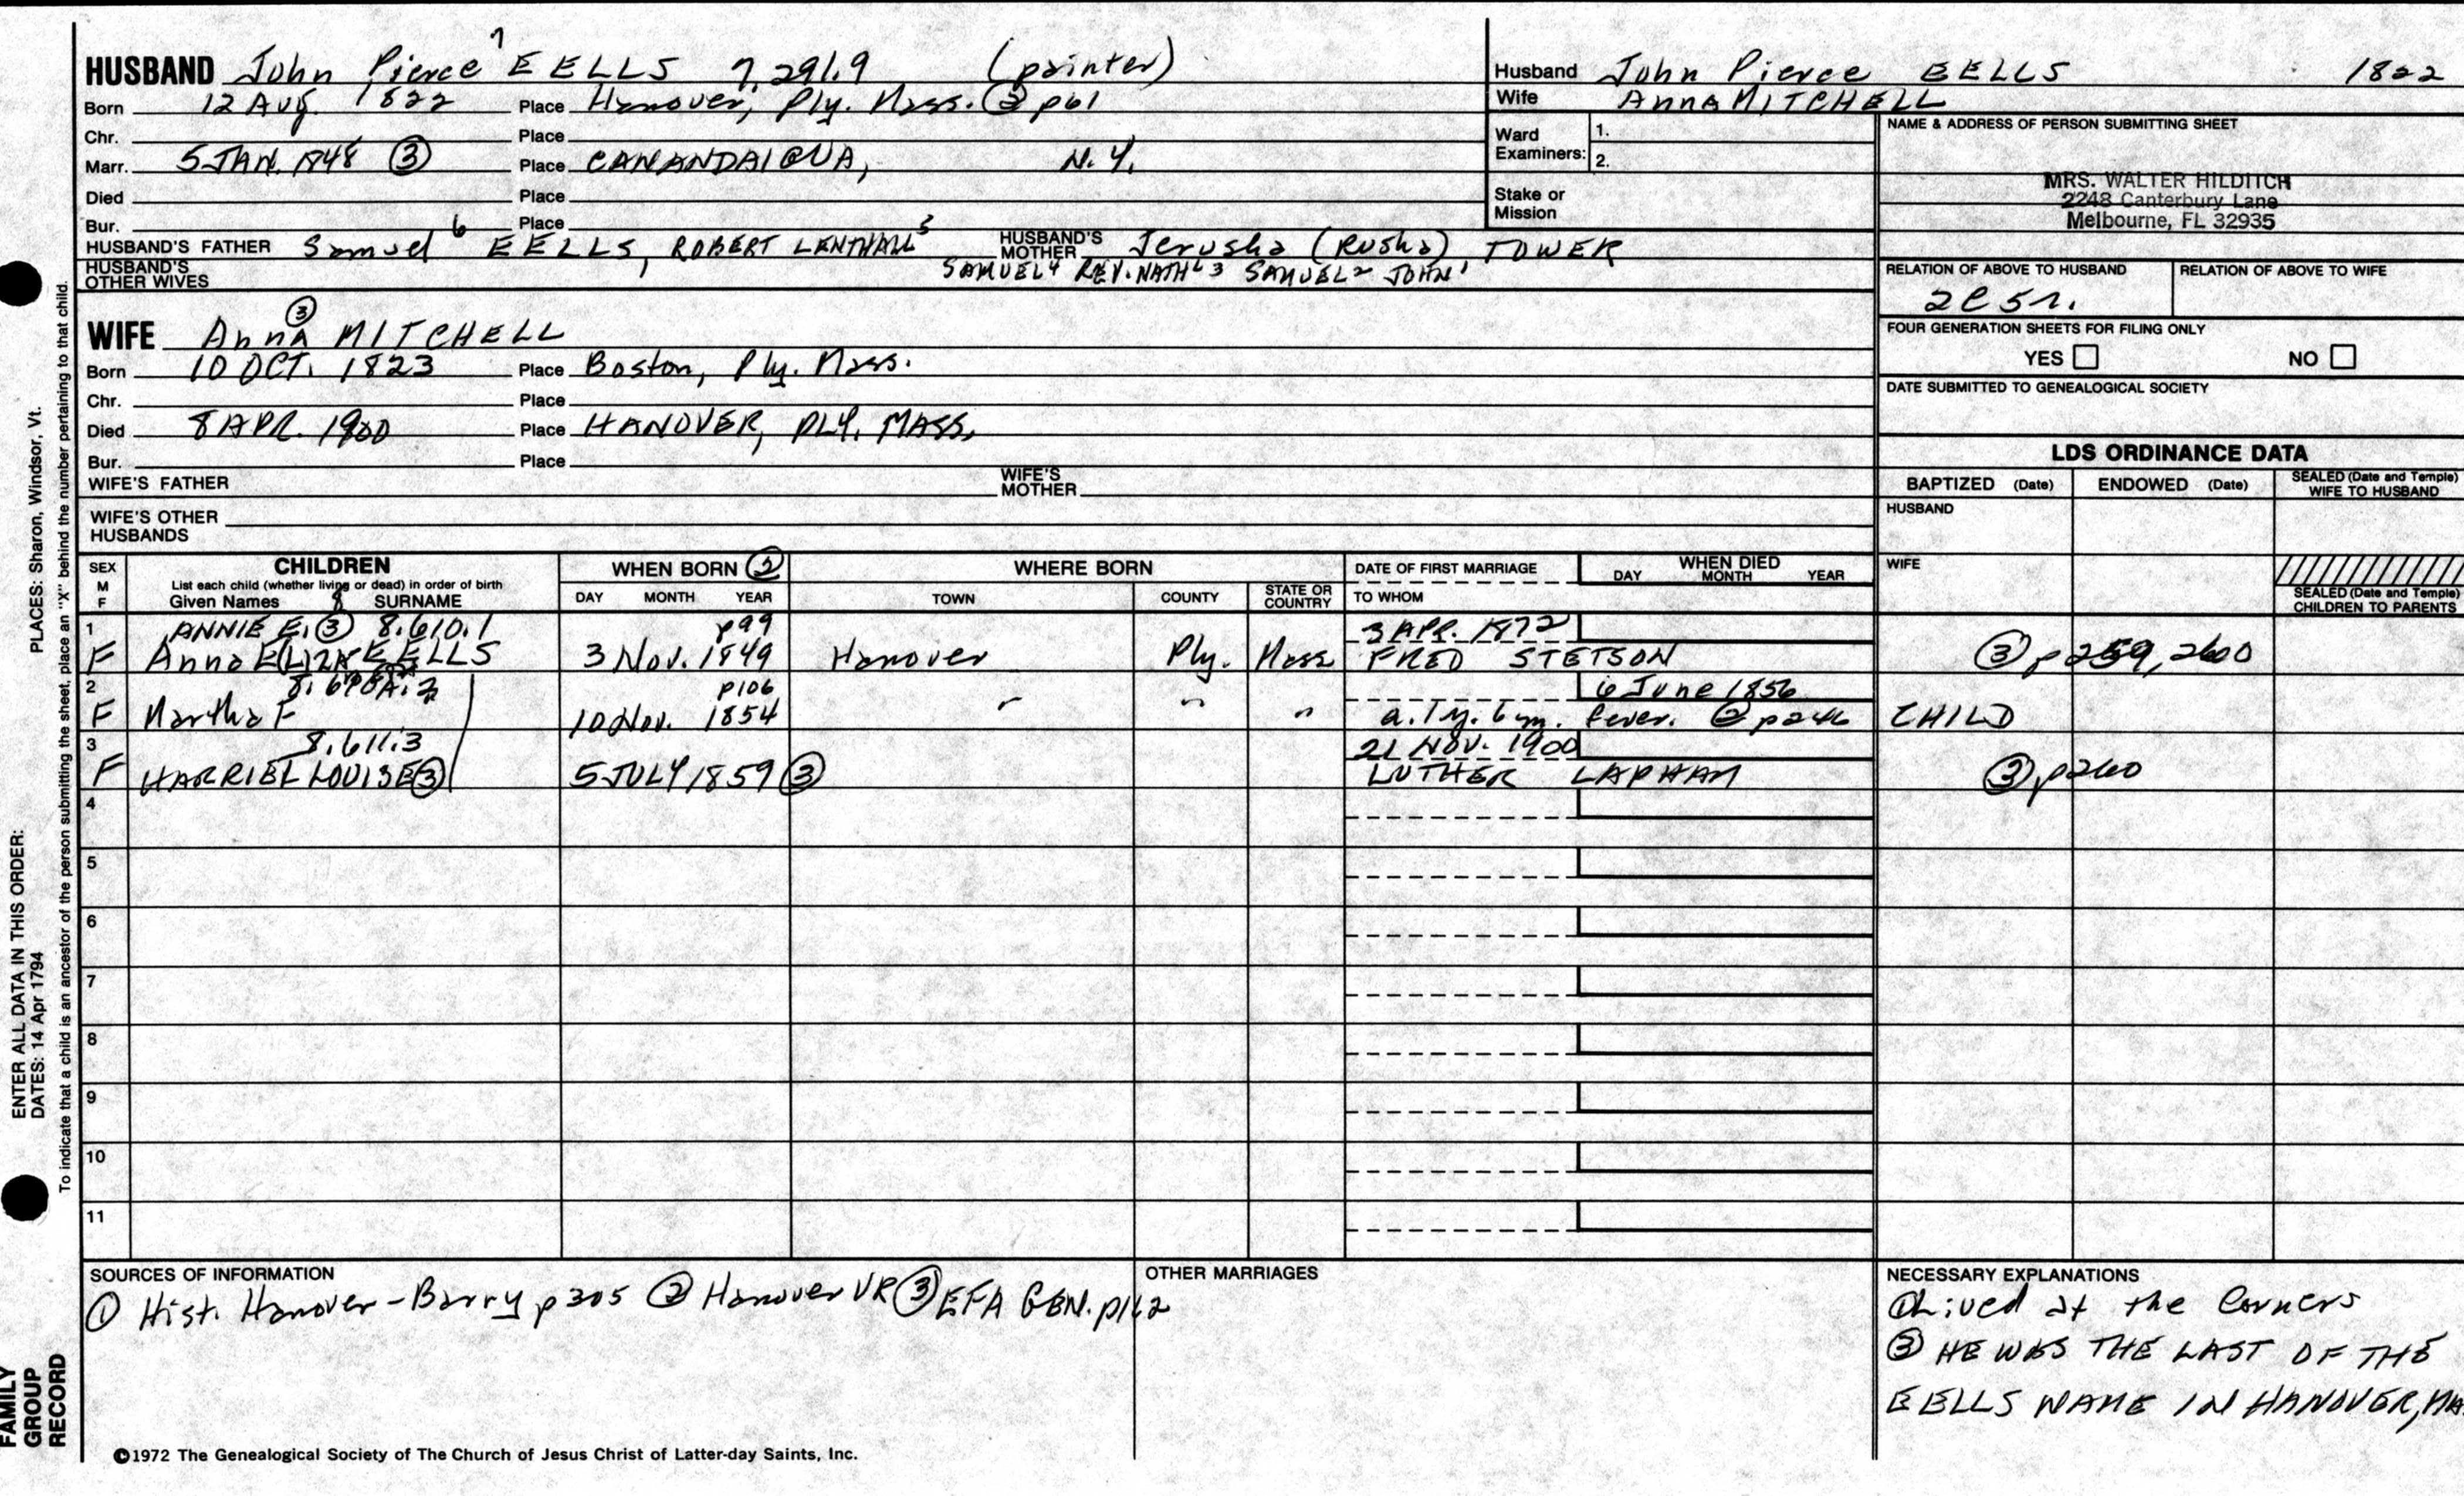 HUSBAND John Pierce 7 EELLS 7,291.9 (painter)
Born 12 Aug. 1822 Place Hanover, Ply. Mass. ② p61
Chr. Place
Marr. 5 JAN. 1848 ③ Place CANANDAIGUA, N.Y.
Died Place
Bur. Place
HUSBAND'S FATHER Samuel 6 EELLS, ROBERT LENTHALL 5 HUSBAND'S MOTHER Jerusha (Rusha) TOWER
HUSBAND'S OTHER WIVES SAMUEL 4 REV. NATHL 3 SAMUEL 2 JOHN 1
WIFE Anna ③ MITCHELL
Born 10 OCT. 1823 Place Boston, Ply. Mass.
Chr. Place
Died 8 APR. 1900 Place HANOVER, PLY. MASS.
Bur. Place
WIFE'S FATHER WIFE'S MOTHER
WIFE'S OTHER HUSBANDS
Husband John Pierce EELLS 1822
Wife Anna MITCHELL
Ward Examiners: 1.
2.
Stake or Mission
NAME & ADDRESS OF PERSON SUBMITTING SHEET
MRS. WALTER HILDITCH
2248 Canterbury Lane
Melbourne, FL 32935
RELATION OF ABOVE TO HUSBAND RELATION OF ABOVE TO WIFE
2C5r.
FOUR GENERATION SHEETS FOR FILING ONLY
YES NO
DATE SUBMITTED TO GENEALOGICAL SOCIETY
LDS ORDINANCE DATA
BAPTIZED (Date) ENDOWED (Date) SEALED (Date and Temple) WIFE TO HUSBAND
HUSBAND
WIFE
SEALED (Date and Temple) CHILDREN TO PARENTS
SEX M F CHILDREN WHEN BORN ② WHERE BORN DATE OF FIRST MARRIAGE WHEN DIED
List each child (whether living or dead) in order of birth
Given Names 8 SURNAME DAY MONTH YEAR TOWN COUNTY STATE OR COUNTRY TO WHOM DAY MONTH YEAR
1 ANNIE E. ③ 8.610.1 p99 3 APR. 1872
F Anna E(L)IZA EELLS 3 Nov. 1849 Hanover Ply. Mass FRED STETSON ③ p259, 260
2 p106 6 June 1856
F Martha F 10 Nov. 1854 " " " a. 1y. 6m. fever. ② p246 CHILD
3 8.611.3 21 NOV. 1900
F HARRIET LOUISE ③ 5 JULY 1859 ③ LUTHER LAPHAM ③ p260
4
5
6
7
8
9
10
11
SOURCES OF INFORMATION
① Hist. Hanover - Barry p305 ② Hanover VR ③ EFA GEN. p162
OTHER MARRIAGES
NECESSARY EXPLANATIONS
① Lived at the Corners
③ HE WAS THE LAST OF THE
EELLS NAME IN HANOVER, MA
©1972 The Genealogical Society of The Church of Jesus Christ of Latter-day Saints, Inc.
PLACES: Sharon, Windsor, Vt.
To indicate that a child is an ancestor of the person submitting the sheet, place an "X" behind the number pertaining to that child.
ENTER ALL DATA IN THIS ORDER:
DATES: 14 Apr 1794
FAMILY GROUP RECORD